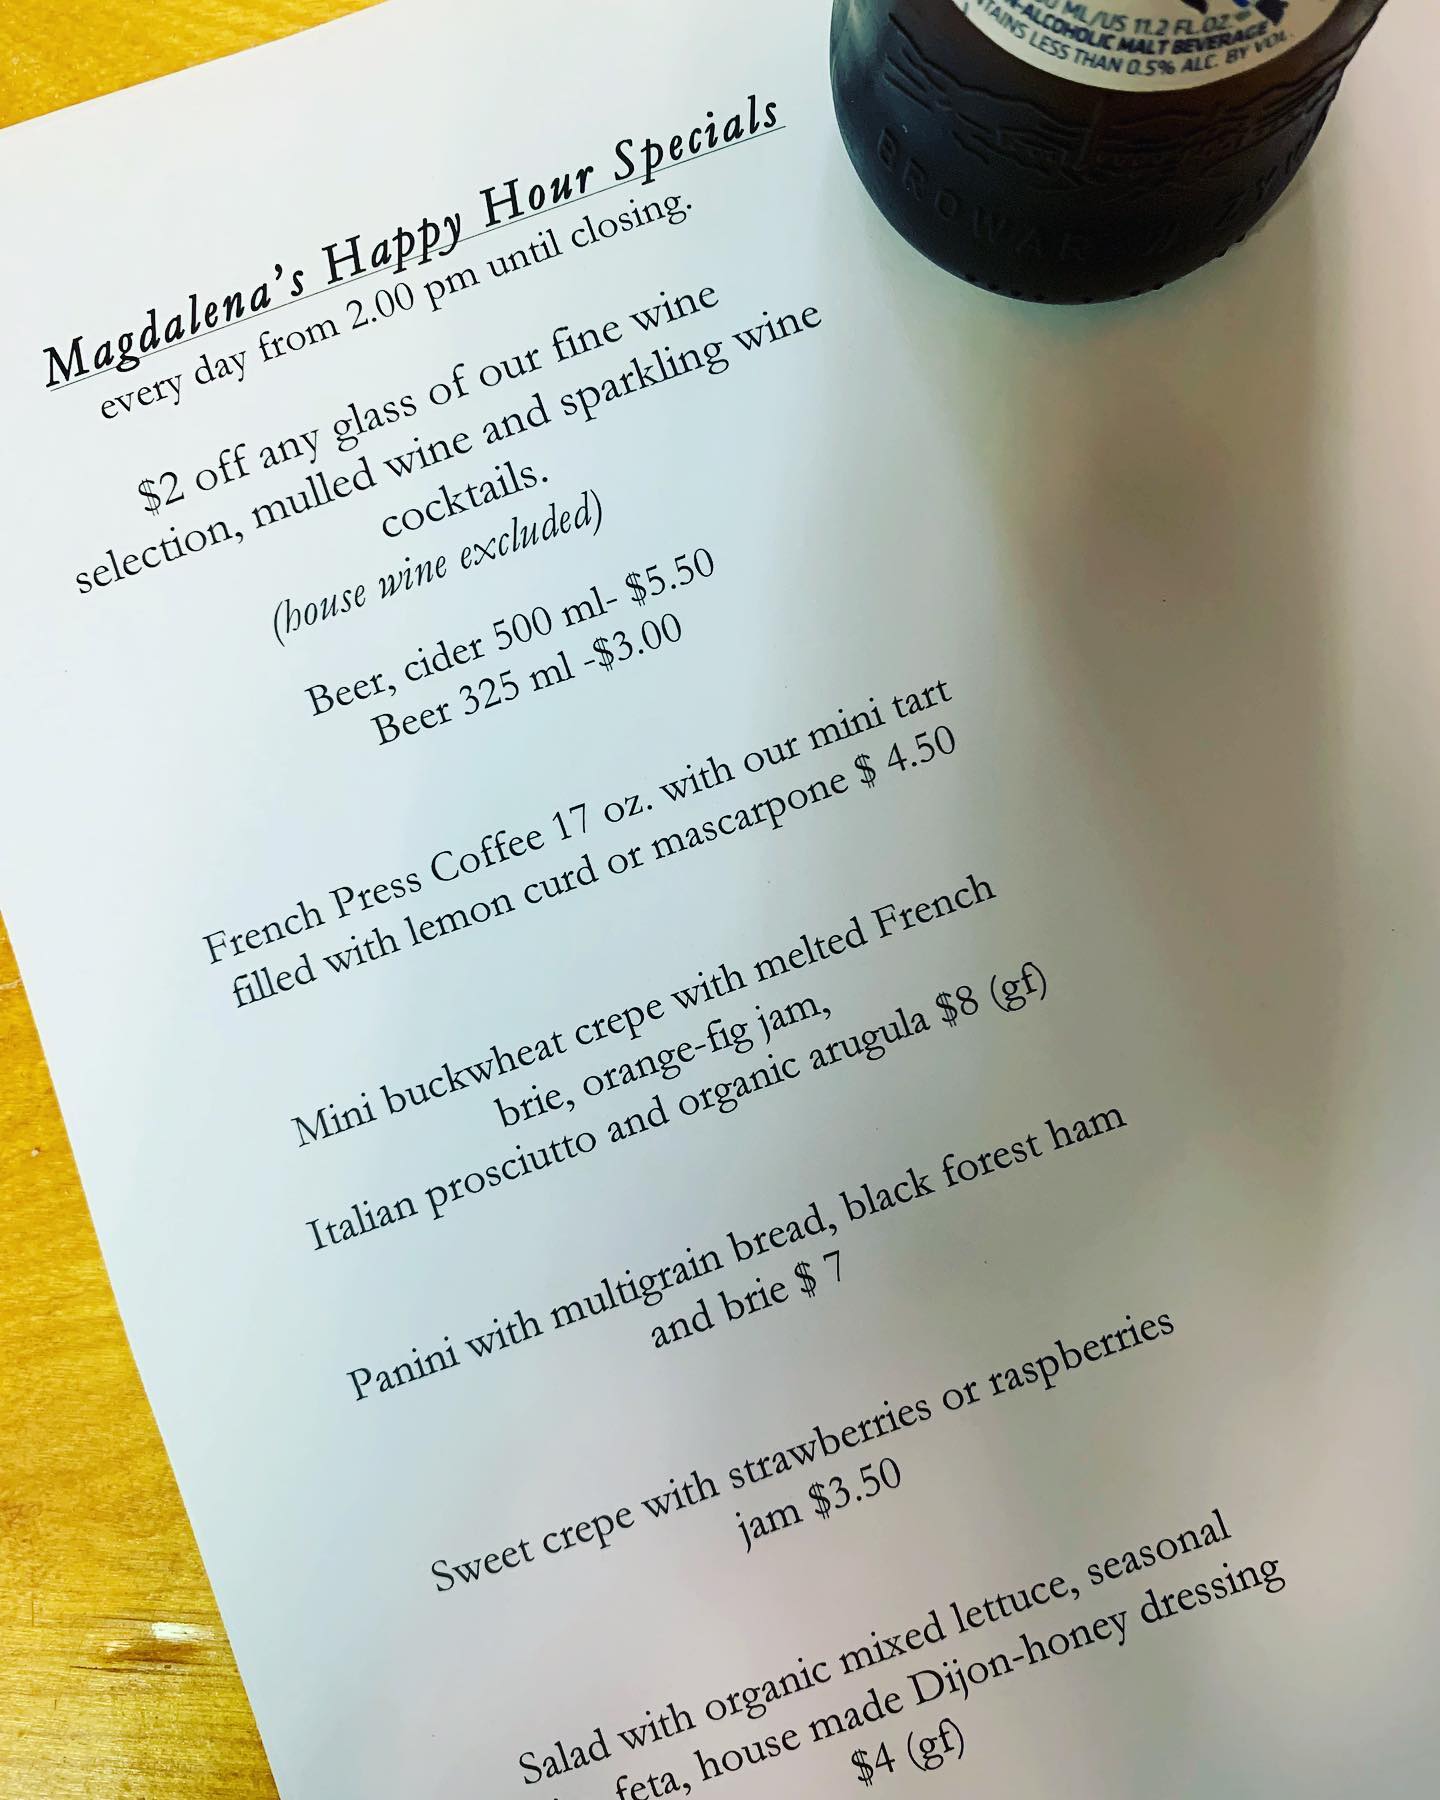 ML/US 11.2 FL.OZ.
-ALCOHOLIC MALT BEVERAGE
LESS THAN 0.5% ALC. BY VOL.
BROWAR
Magdalena's Happy Hour Specials
every day from 2.00 pm until closing.
$2 off any glass of our fine wine
selection, mulled wine and sparkling wine
cocktails.
(house wine excluded)
Beer, cider 500 ml- $5.50
Beer 325 ml -$3.00
French Press Coffee 17 oz. with our mini tart
filled with lemon curd or mascarpone $ 4.50
Mini buckwheat crepe with melted French
brie, orange-fig jam,
Italian prosciutto and organic arugula $8 (gf)
Panini with multigrain bread, black forest ham
and brie $ 7
Sweet crepe with strawberries or raspberries
jam $3.50
Salad with organic mixed lettuce, seasonal
feta, house made Dijon-honey dressing
$4 (gf)